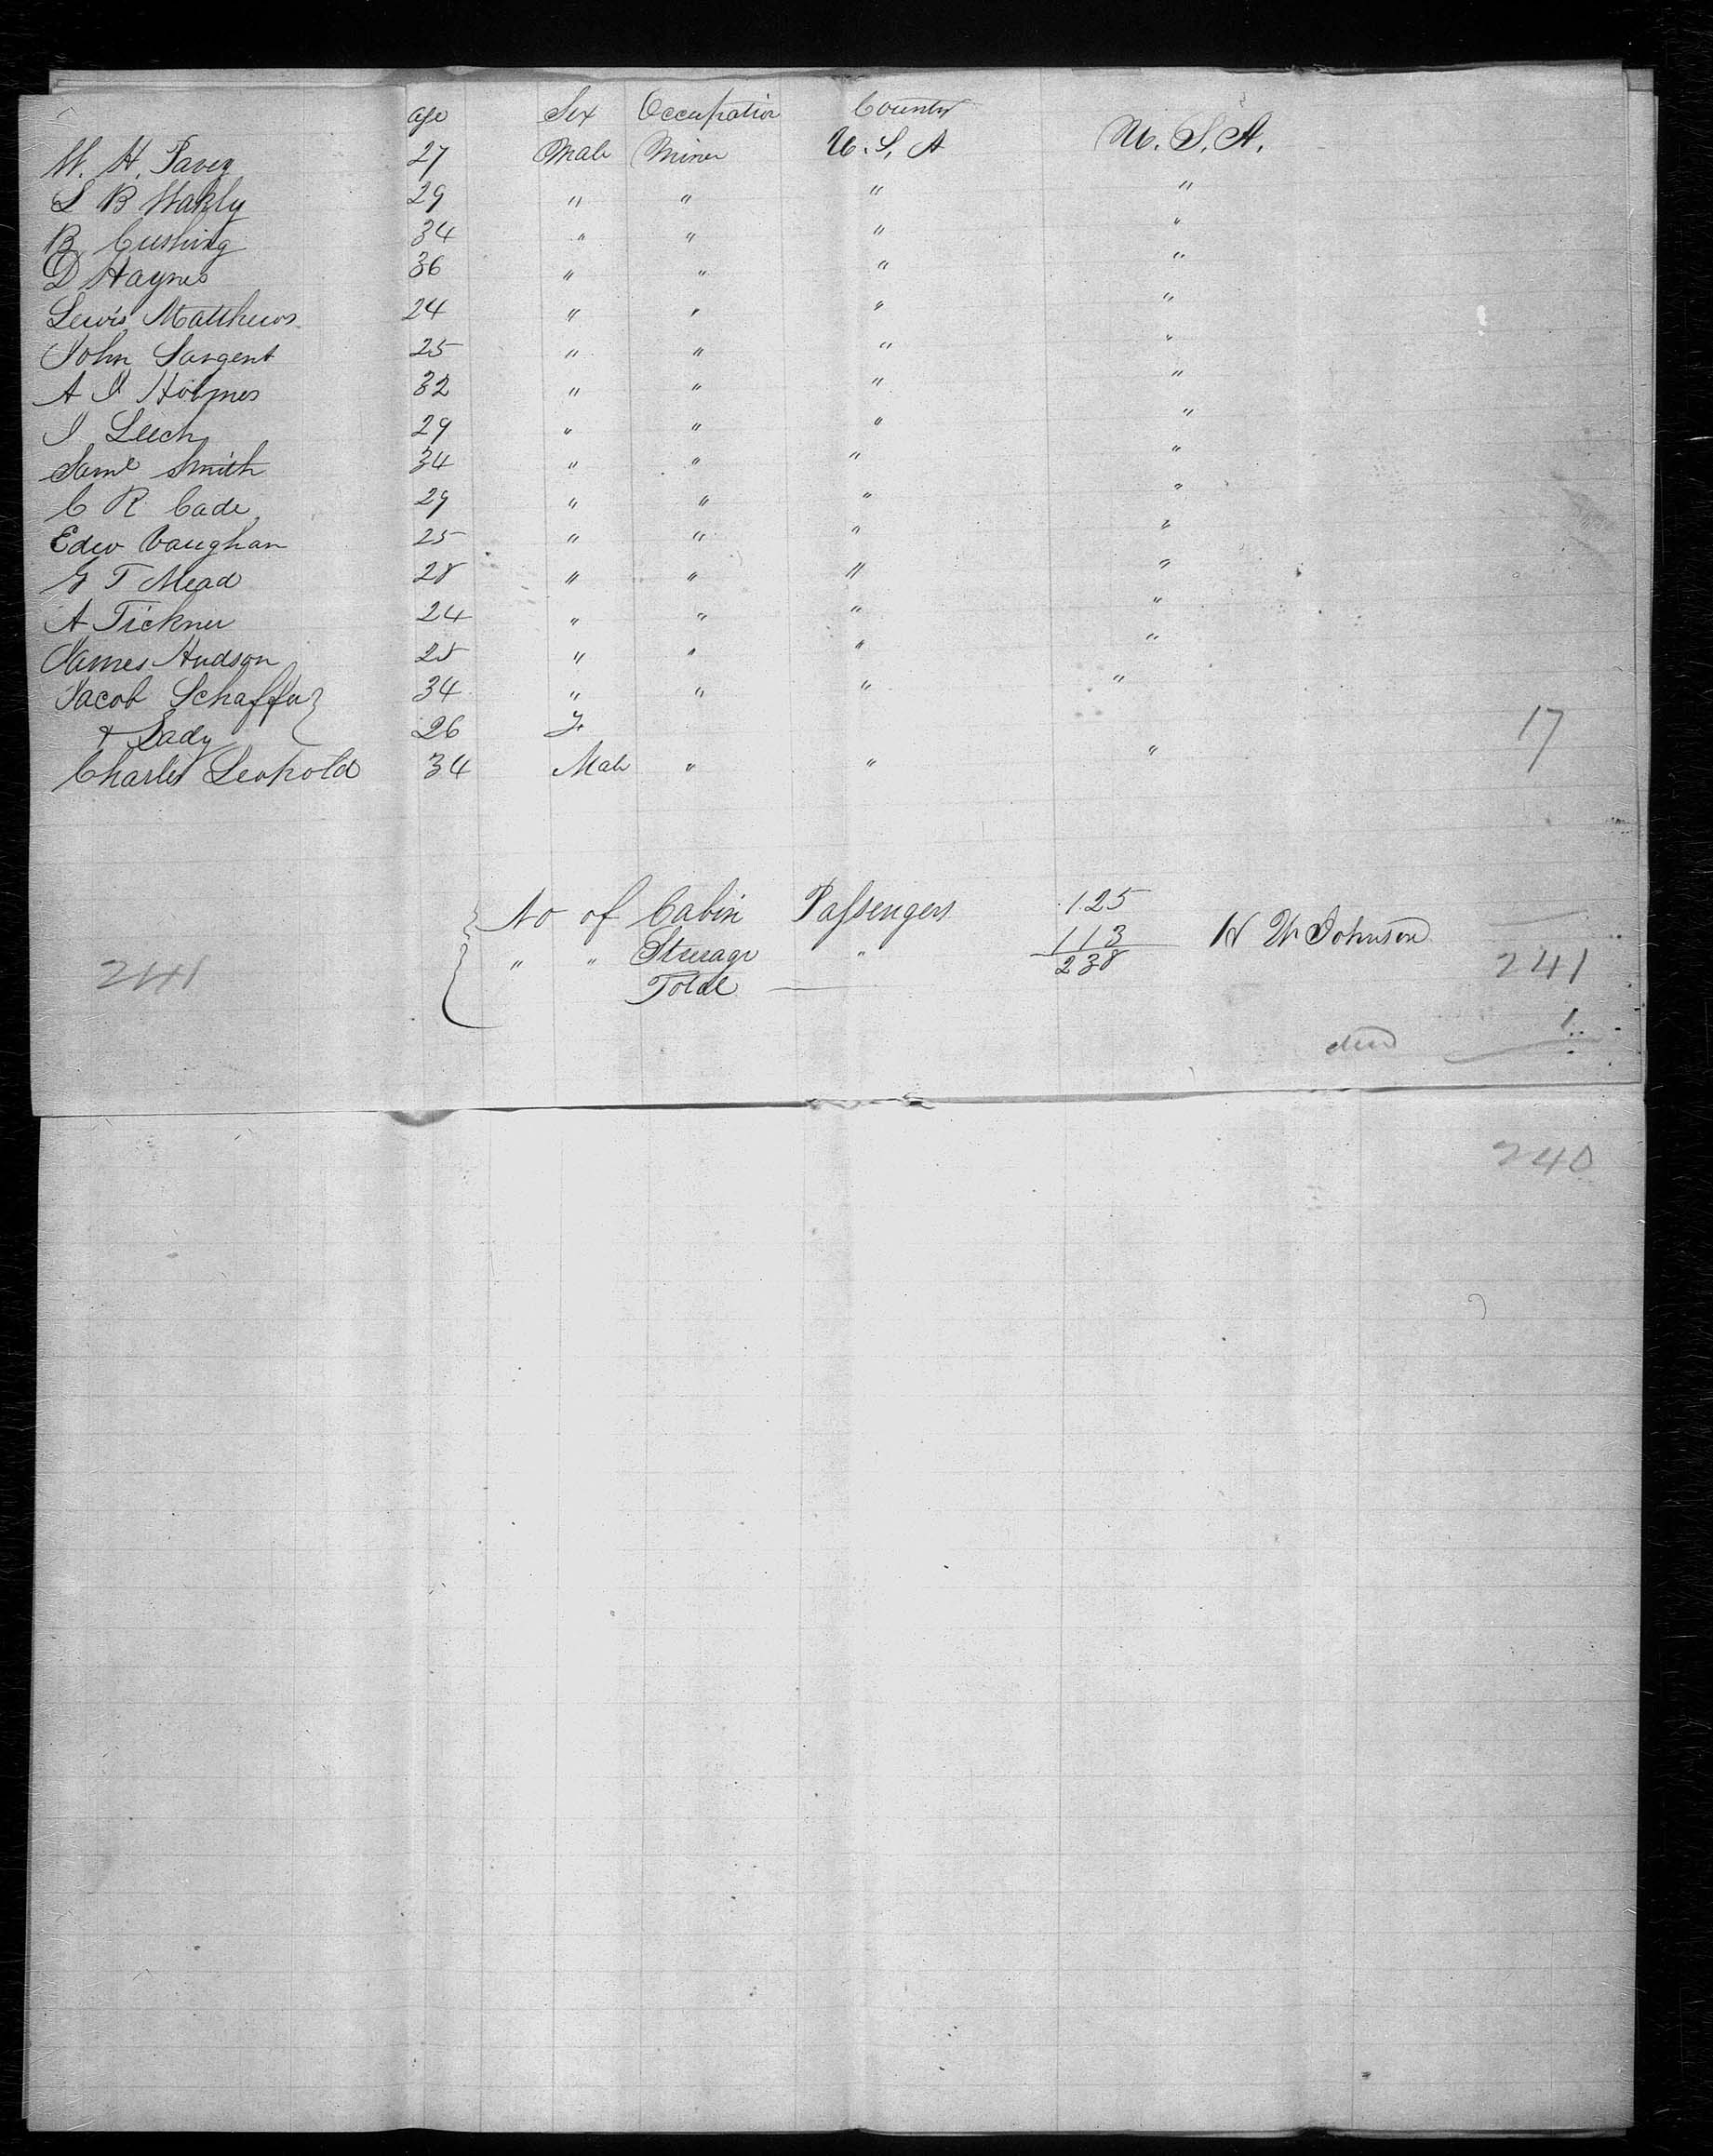 age Sex Occupation Country
W. H. Pavey 27 Male Miner U. S. A U. S. A.
S B Wakly 29 " " " "
B Cushing 34 " " " "
D Haynes 36 " " " "
Lewis Matthews 24 " " " "
John Sargent 25 " " " "
A J Holmes 32 " " " "
J Leech 29 " " " "
Saml Smith 34 " " " "
C R Cade 29 " " " "
Edw Vaughan 25 " " " "
G T Mead 28 " " " "
A Tickner 24 " " " "
James Hudson 28 " " " "
Jacob Schaffer 34 " " " "
& Lady 26 F. 17
Charles Leopold 34 Male " " "
No of Cabin Passengers 125
" " Steerage " 113 H W Johnson
Total 238
241 241
died 1
240